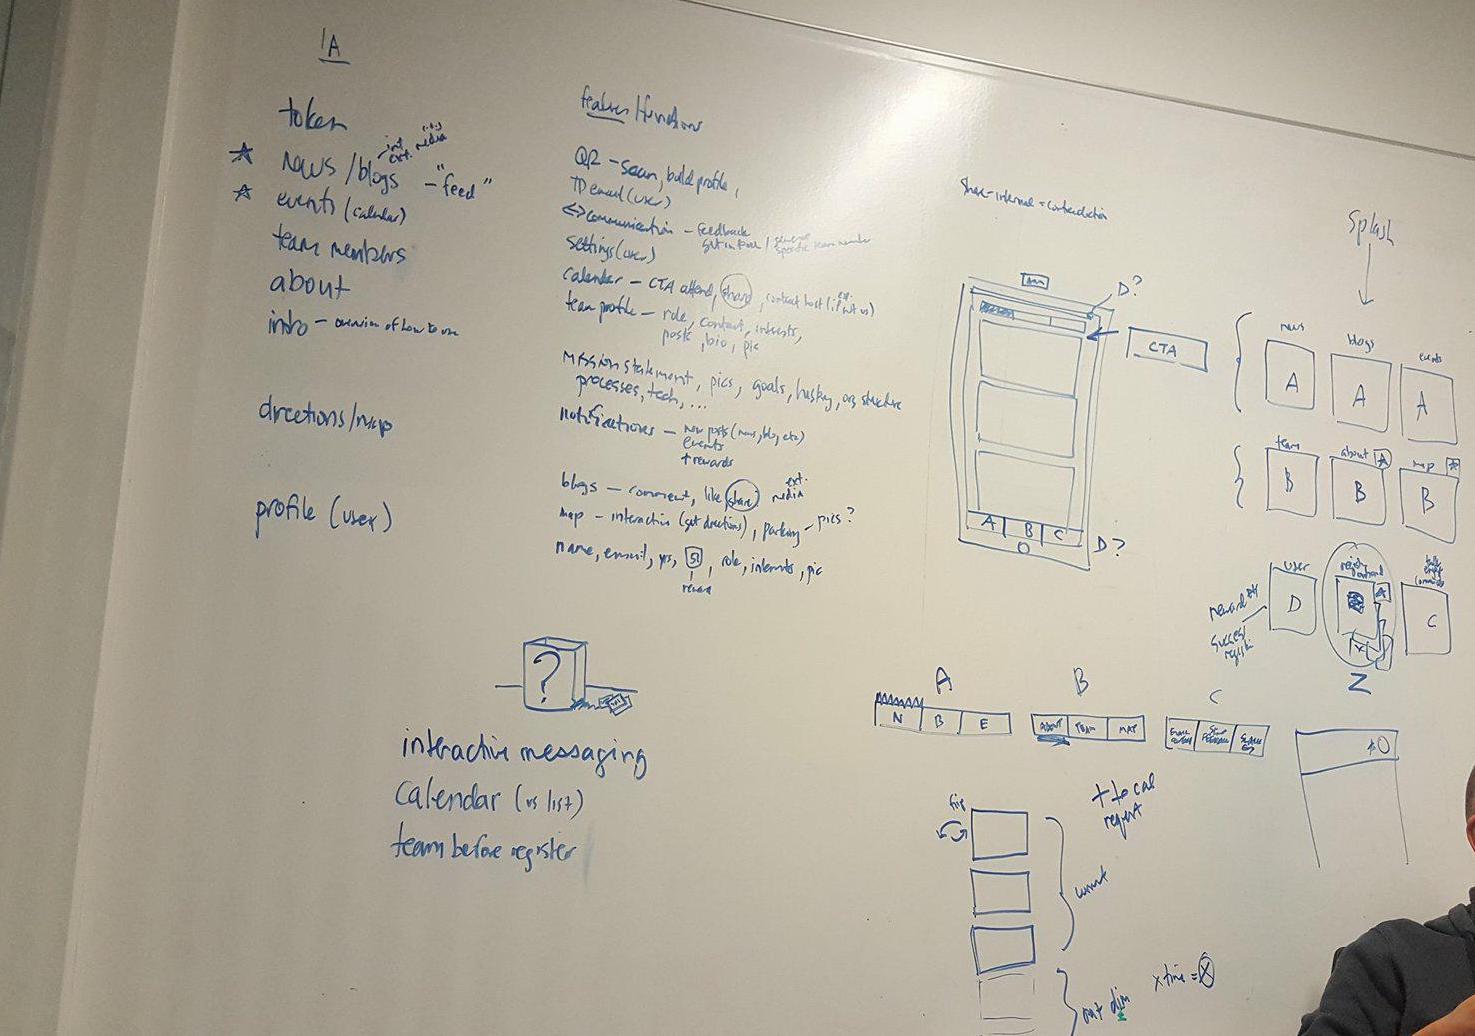 IA
token
news/blogs - "feed"
int. ext. media
events (calendar)
team members
about
intro - overview of how to use
directions/map
profile (user)
features/functions
QR - scan, build profile,
TD email (user)
<-> communication - feedback
get in touch / general
specific team member
settings (user)
calendar - CTA attend, share, contact host (if ext.
team profile - role, contact, interests,
posts, bio, pic
Mission statement, pics, goals, history, org structure
processes, tech, ...
notifications - new posts (news, blog, etc)
events
+ rewards
blogs - comment, like share
ext. media
map - interactive (get directions), parking - pics?
name, email, role, interests, pic
reward
?
interactive messaging
calendar (vs list)
team before register
Share - internal = contradiction
D?
CTA
A B C
D?
Splash
news blogs events
A A A
team about map
B B B
user
D C
reward
success
Z
A B C
N B E
ABOUT TEAM MAP
+ to cal
request
x time = X